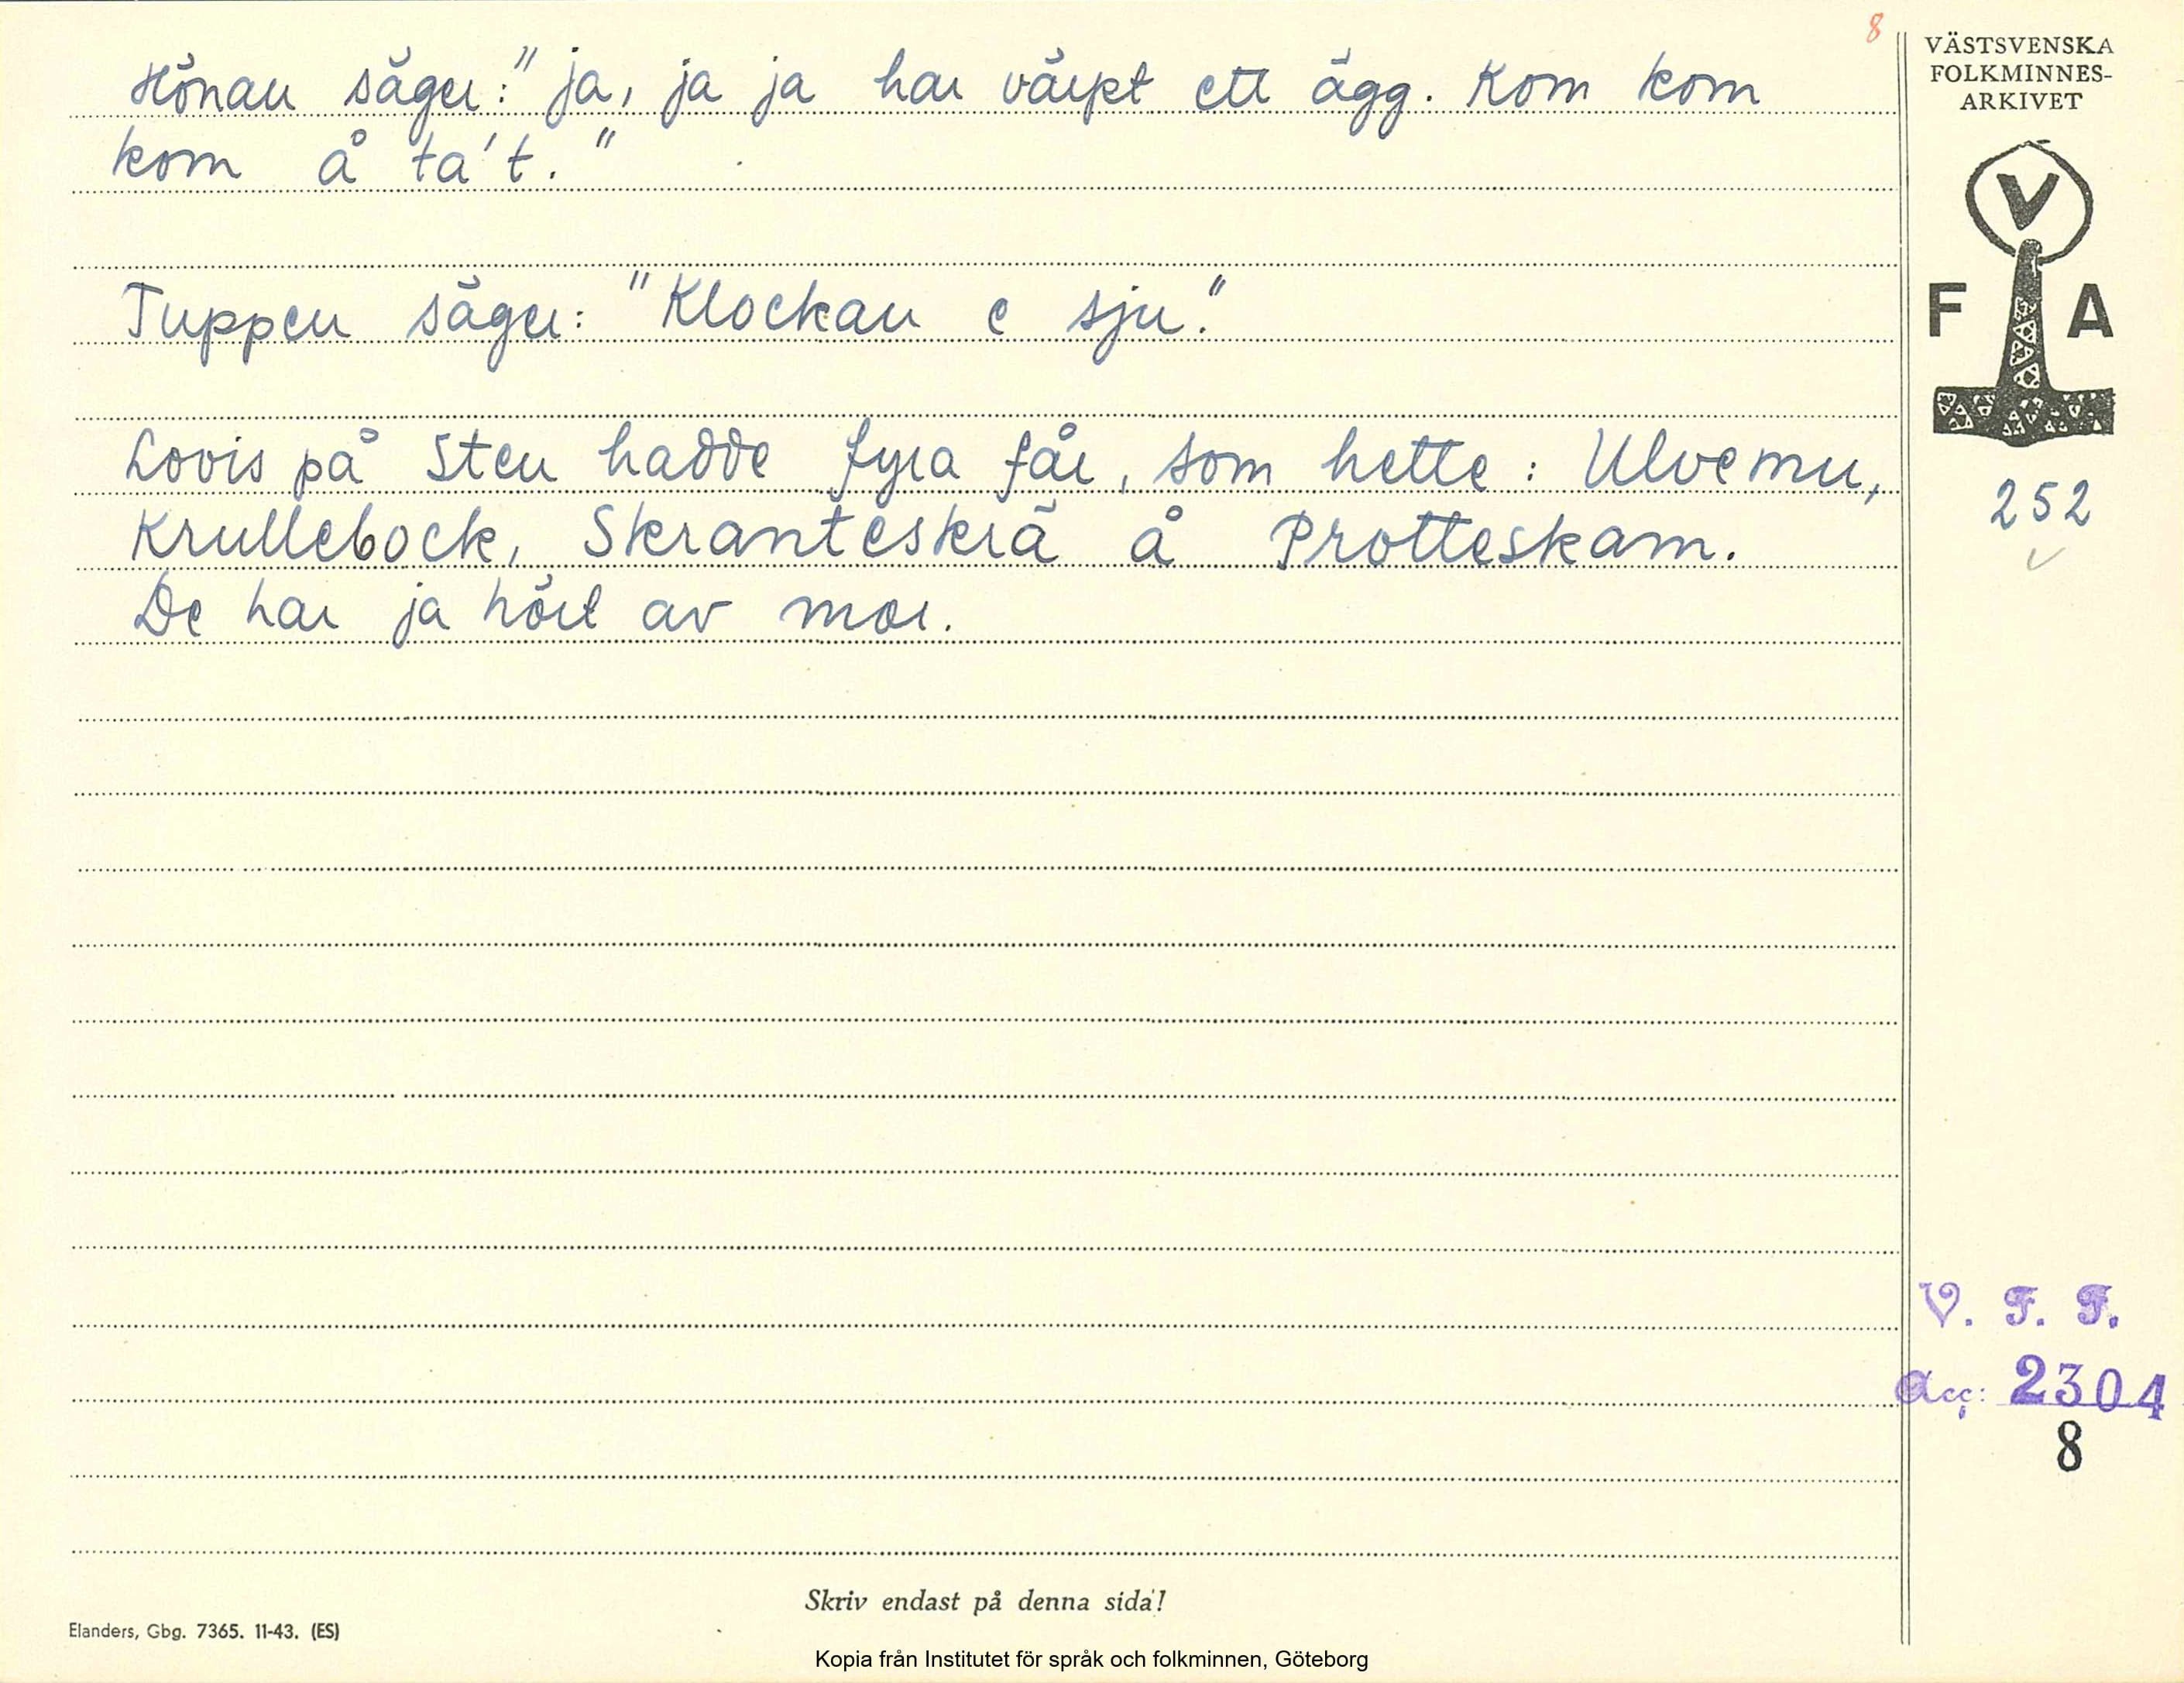 8
VÄSTSVENSKA
FOLKMINNES-
ARKIVET
V
F A
Hönan säger: "ja, ja ja har värpt ett ägg. Kom kom
kom å ta't."
Tuppen säger: "Klockan e sju."
Lovis på Sten hadde fyra får, som hette: Ulvemu,
Krullebock, Skranteskrä å Protteskam.
De har ja hört av mor.
252
V. F. F.
Acc: 2304
8
Skriv endast på denna sida!
Elanders, Gbg. 7365. 11-43. (ES)
Kopia från Institutet för språk och folkminnen, Göteborg